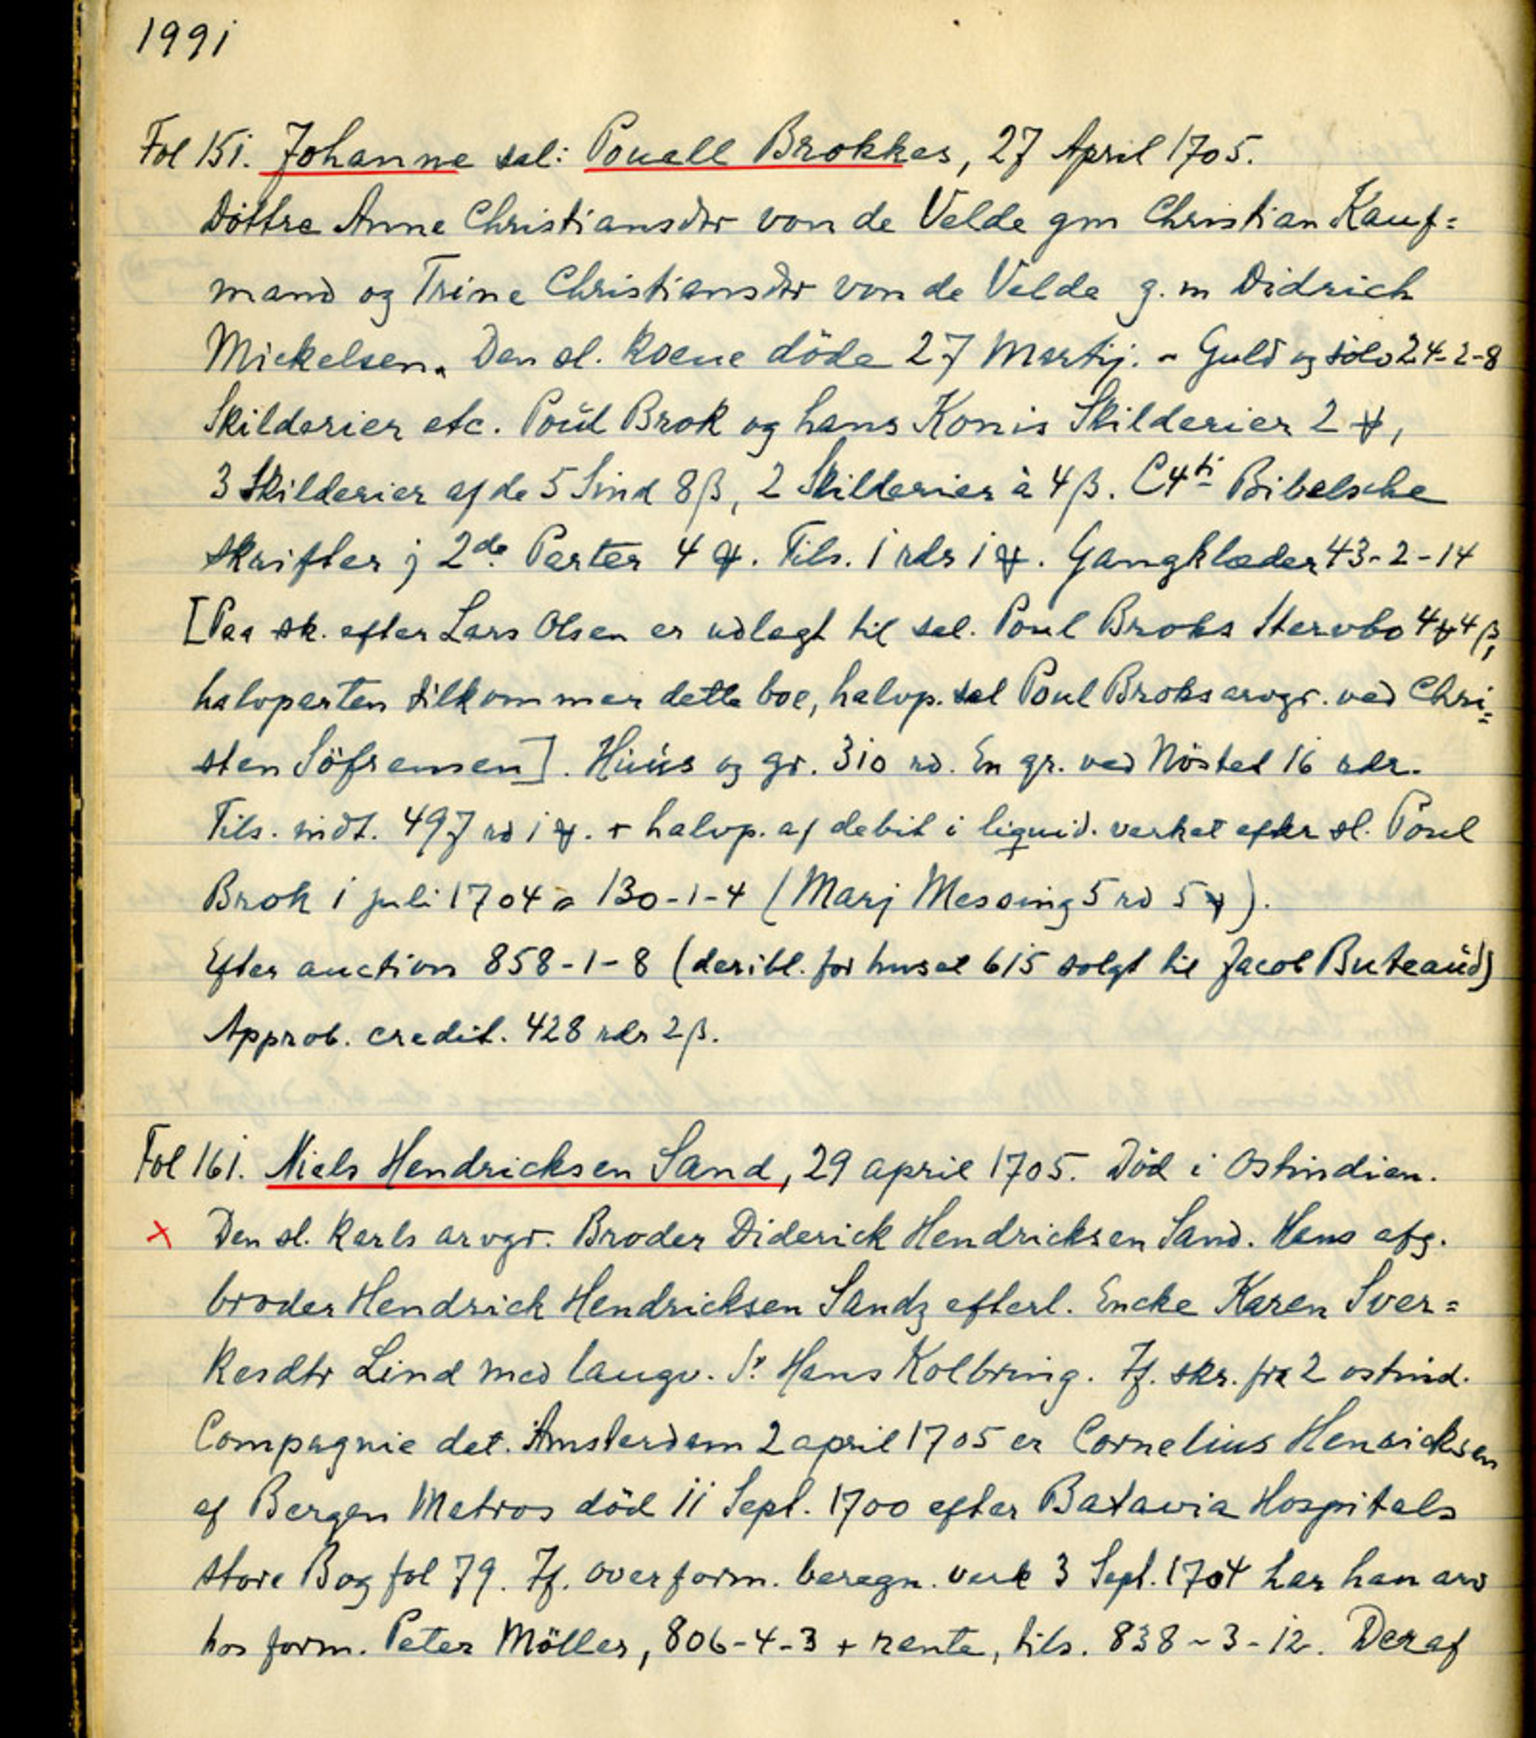 1991
Fol 151. Johanne sal: Pouell Brokkes, 27 April 1705.
Döttre Anne Christiansdtr von de Velde gm Christian Kauf=
mand og Trine Christiansdtr von de Velde g.m Didrich
Mickelsen. Den sl. Kone döde 27 Martij. - Guld og sölv 24-2-8
Skilderier etc. Poŭl Brok og hans Konis Skilderier 2 ꝟ,
3 Skilderier af de 5 Sind 8 β, 2 Skilderier à 4 β. C4ti Bibelsche
skrifter j 2de Parter 4 ꝟ. Tils. 1 rdr 1 ꝟ. Gangklæder 43-2-14
[Paa sk. efter Lars Olsen er udlagt til sal. Poul Broks Stervbo 4 ꝟ 4 β,
halvparten tilkommer dette boe, halvp. sal Poul Broks arvgr. ved Chri=
sten Söfrensen]. Huŭs og gr. 310 rd. En gr. ved Nöstet 16 rdr.
Tils. indt. 497 rd 1 ꝟ. + halvp. af debit i liquid. verket efter sl. Poul
Brok 1 juli 1704 = 130-1-4 (Marj Messing 5 rd 5 ꝟ).
Efter auction 858-1-8 (deribl. for huset 615 solgt til Jacob Buteaŭd)
Approb. credit. 428 rdr 2 β.
Fol 161. Niels Hendricksen Sand, 29 april 1705. Död i Ostindien.
x Den sl. Karls arvgr. Broder Diderick Hendricksen Sand. Hans afg.
broder Hendrich Hendricksen Sandz efterl. Encke Karen Sver=
kesdtr Lind med laugv. Sr Hans Kolbring. Jf. skr. fra 2 ostind.
Compagnie dat. Amsterdam 2 april 1705 er Cornelius Henricksen
af Bergen Matros död 11 Sept. 1700 efter Batavia Hospitals
store Bog fol 79. Jf. overform. beregn. verk 3 Sept. 1704 har han arv
hos form. Peter Möller, 806-4-3 + rente, tils. 838-3-12. Deraf